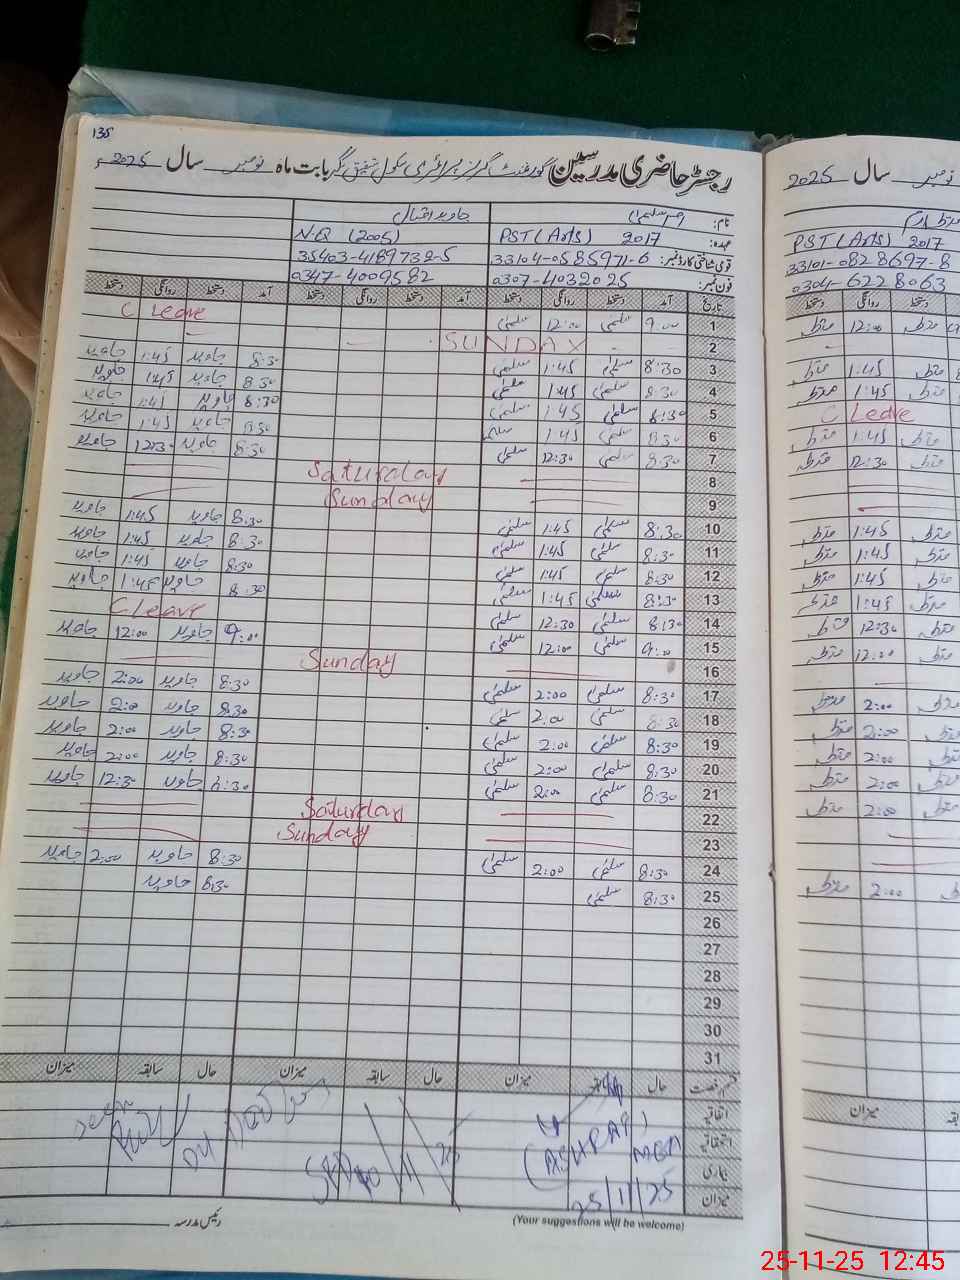 135
رجسٹر حاضری مدرسین گورنمنٹ گرلز پرائمری سکول شفیق نگر بابت ماہ نومبر سال 2025ء
نام: سلمیٰ جاوید اقبال
عہدہ: PST (Arts) 2017 N-Q (2005)
قومی شناختی کارڈ نمبر: 33104-0585971-6 35403-4189732-5
فون نمبر: 0307-4032025 0347-4009582
تاریخ آمد دستخط روانگی دستخط آمد دستخط روانگی دستخط آمد دستخط روانگی دستخط
1 9:00 سلمیٰ 12:00 سلمیٰ C Leave
2 SUNDAY
3 8:30 سلمیٰ 1:45 سلمیٰ 8:30 جاوید 1:45 جاوید
4 8:30 سلمیٰ 1:45 سلمیٰ 8:30 جاوید 1:45 جاوید
5 8:30 سلمیٰ 1:45 سلمیٰ 8:30 جاوید 1:45 جاوید
6 8:30 سلمیٰ 1:45 سلمیٰ 8:30 جاوید 1:45 جاوید
7 8:30 سلمیٰ 12:30 سلمیٰ 8:30 جاوید 12:30 جاوید
8 Saturday
9 Sunday
10 8:30 سلمیٰ 1:45 سلمیٰ 8:30 جاوید 1:45 جاوید
11 8:30 سلمیٰ 1:45 سلمیٰ 8:30 جاوید 1:45 جاوید
12 8:30 سلمیٰ 1:45 سلمیٰ 8:30 جاوید 1:45 جاوید
13 8:30 سلمیٰ 1:45 سلمیٰ 8:30 جاوید 1:45 جاوید
14 8:30 سلمیٰ 12:30 سلمیٰ C Leave
15 9:00 سلمیٰ 12:00 سلمیٰ 9:00 جاوید 12:00 جاوید
16 Sunday
17 8:30 سلمیٰ 2:00 سلمیٰ 8:30 جاوید 2:00 جاوید
18 8:30 سلمیٰ 2:00 سلمیٰ 8:30 جاوید 2:00 جاوید
19 8:30 سلمیٰ 2:00 سلمیٰ 8:30 جاوید 2:00 جاوید
20 8:30 سلمیٰ 2:00 سلمیٰ 8:30 جاوید 2:00 جاوید
21 8:30 سلمیٰ 2:00 سلمیٰ 8:30 جاوید 12:30 جاوید
22 Saturday
23 Sunday
24 8:30 سلمیٰ 2:00 سلمیٰ 8:30 جاوید 2:00 جاوید
25 8:30 سلمیٰ 8:30 جاوید
26
27
28
29
30
31
قسم رخصت حال سابقہ میزان حال سابقہ میزان حال سابقہ میزان
اتفاقیہ
استحقاقیہ
بیماری
میزان
(ASHRAF)
25/11/25
(Your suggestions will be welcome)
رئیس مدرسہ
نومبر سال 2025
PST (Arts) 2017
33101-0828697-8
0304-6228063
دستخط روانگی دستخط
12:00
1:45
1:45
C Leave
1:45
12:30
1:45
1:45
1:45
1:45
12:30
12:00
2:00
2:00
2:00
2:00
2:00
2:00
میزان
25-11-25 12:45